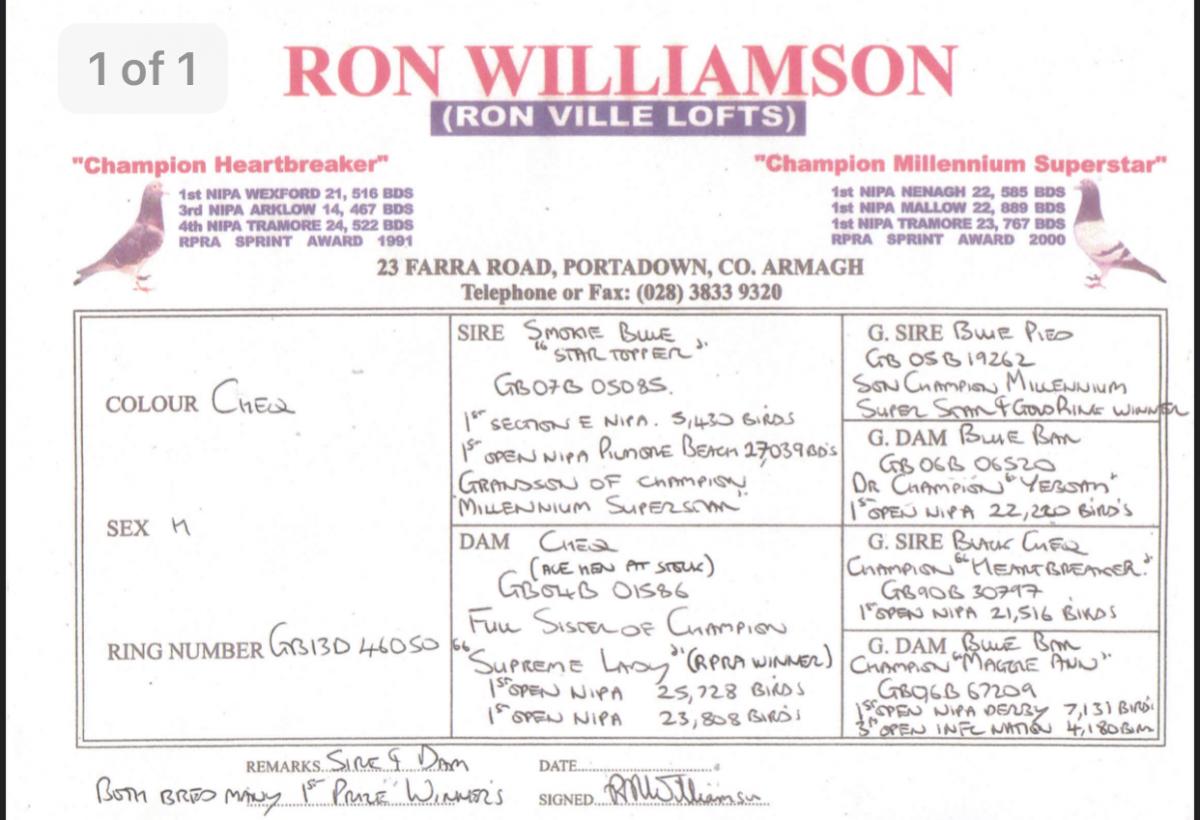 1 of 1
RON WILLIAMSON
(RON VILLE LOFTS)
"Champion Heartbreaker"
1st NIPA WEXFORD 21, 516 BDS
3rd NIPA ARKLOW 14, 467 BDS
4th NIPA TRAMORE 24, 522 BDS
RPRA SPRINT AWARD 1991
"Champion Millennium Superstar"
1st NIPA NENAGH 22, 585 BDS
1st NIPA MALLOW 22, 889 BDS
1st NIPA TRAMORE 23, 767 BDS
RPRA SPRINT AWARD 2000
23 FARRA ROAD, PORTADOWN, CO. ARMAGH
Telephone or Fax: (028) 3833 9320
COLOUR CHEQ
SEX H
RING NUMBER GB13D 46050
SIRE SMOKIE BLUE
"STAR TOPPER".
GB07B 05085.
1ST SECTION E NIPA. 5,430 BIRDS
1ST OPEN NIPA PILMORE BEACH 27,039 BD'S
GRANDSON OF CHAMPION
"MILLENNIUM SUPERSTAR"
DAM CHEQ
(ACE HEN AT STOCK)
GB04B 01586
FULL SISTER OF CHAMPION
"SUPREME LADY" (RPRA WINNER)
1ST OPEN NIPA 25,728 BIRDS
1ST OPEN NIPA 23,808 BIRD'S
G. SIRE BLUE PIED
GB 05B 19262
SON CHAMPION MILLENNIUM
SUPER STAR & GOLD RING WINNER
G. DAM BLUE BAR
GB 06B 06520
DR CHAMPION "YEBOAH"
1ST OPEN NIPA 22,220 BIRD'S
G. SIRE BLACK CHEQ
CHAMPION "HEARTBREAKER".
GB90B 30797
1ST OPEN NIPA 21,516 BIRDS
G. DAM BLUE BAR
CHAMPION "MAGGIE ANN"
GB96B 67209
1ST OPEN NIPA DERBY 7,131 BIRD'S
3RD OPEN INFC NATION 4,180 BIRD
REMARKS SIRE & DAM
BOTH BRED MANY 1ST PRIZE WINNER'S
DATE
SIGNED RMWilliamson